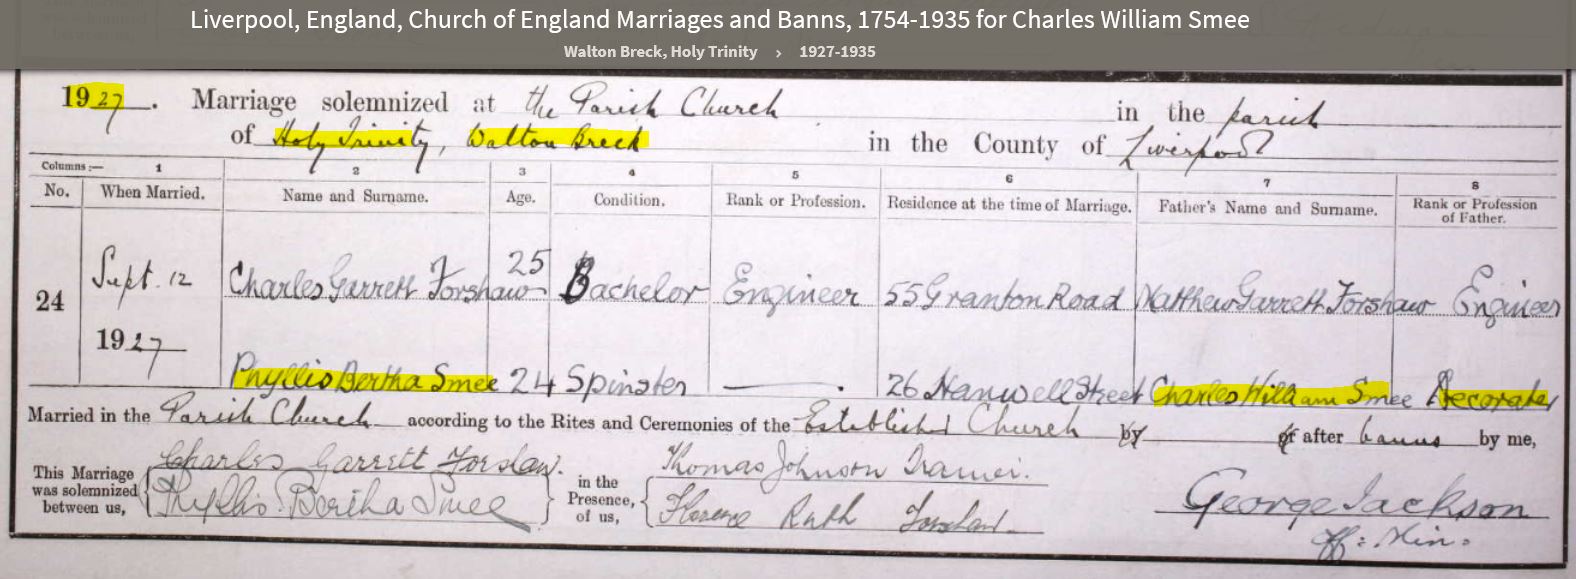 Liverpool, England, Church of England Marriages and Banns, 1754-1935 for Charles William Smee
Walton Breck, Holy Trinity › 1927-1935
1927. Marriage solemnized at the Parish Church in the parish
of Holy Trinity, Walton Breck in the County of Liverpool
Columns:— 1 2 3 4 5 6 7 8
No. When Married. Name and Surname. Age. Condition. Rank or Profession. Residence at the time of Marriage. Father's Name and Surname. Rank or Profession of Father.
24 Sept. 12 Charles Garrett Forshaw 25 Bachelor Engineer 55 Granton Road Matthew Garrett Forshaw Engineer
1927
Phyllis Bertha Smee 24 Spinster —. 26 Hanwell Street Charles William Smee Decorator
Married in the Parish Church according to the Rites and Ceremonies of the Established Church by or after banns by me,
This Marriage was solemnized between us,
Charles Garrett Forshaw.
Phyllis Bertha Smee
in the Presence, of us,
Thomas Johnson
Florence Ruth Forshaw.
George Jackson
Off: Min: